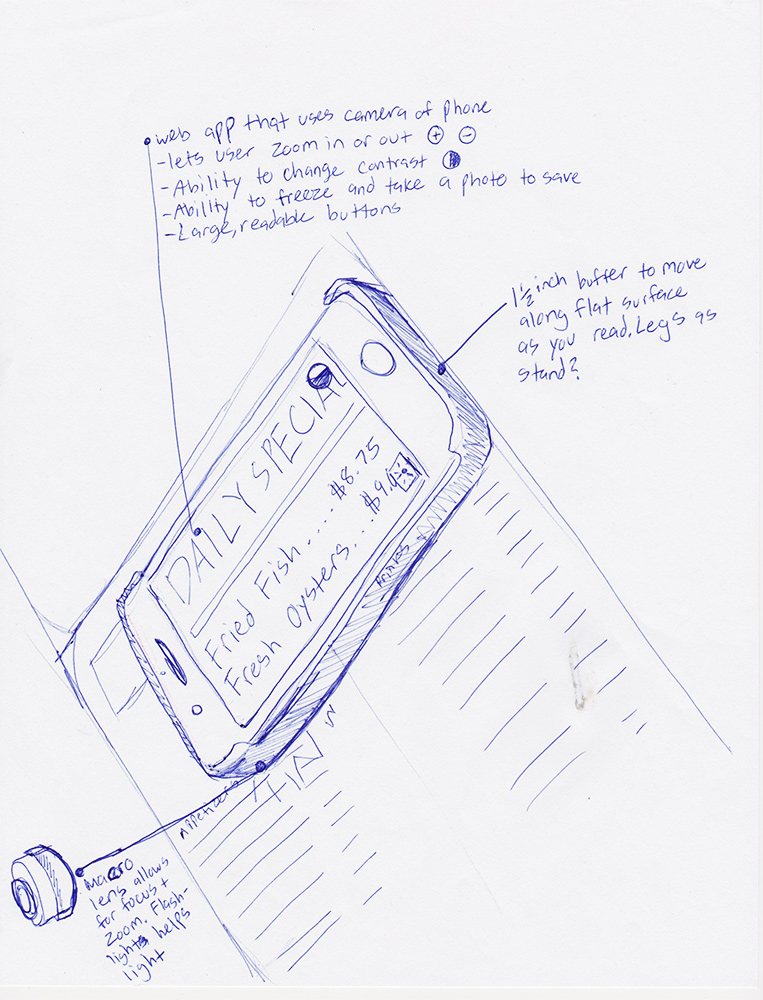 web app that uses camera of phone
-lets user zoom in or out ⊕ ⊖
-Ability to change contrast
-Ability to freeze and take a photo to save
-Large, readable buttons
1½ inch buffer to move
along flat surface
as you read. Legs as
stand?
DAILY SPECIA
Fried Fish.... $8.75
Fresh Oysters... $9.
Drinks
Appetizers
macro
lens allows
for focus +
zoom. Flash-
light helps
light